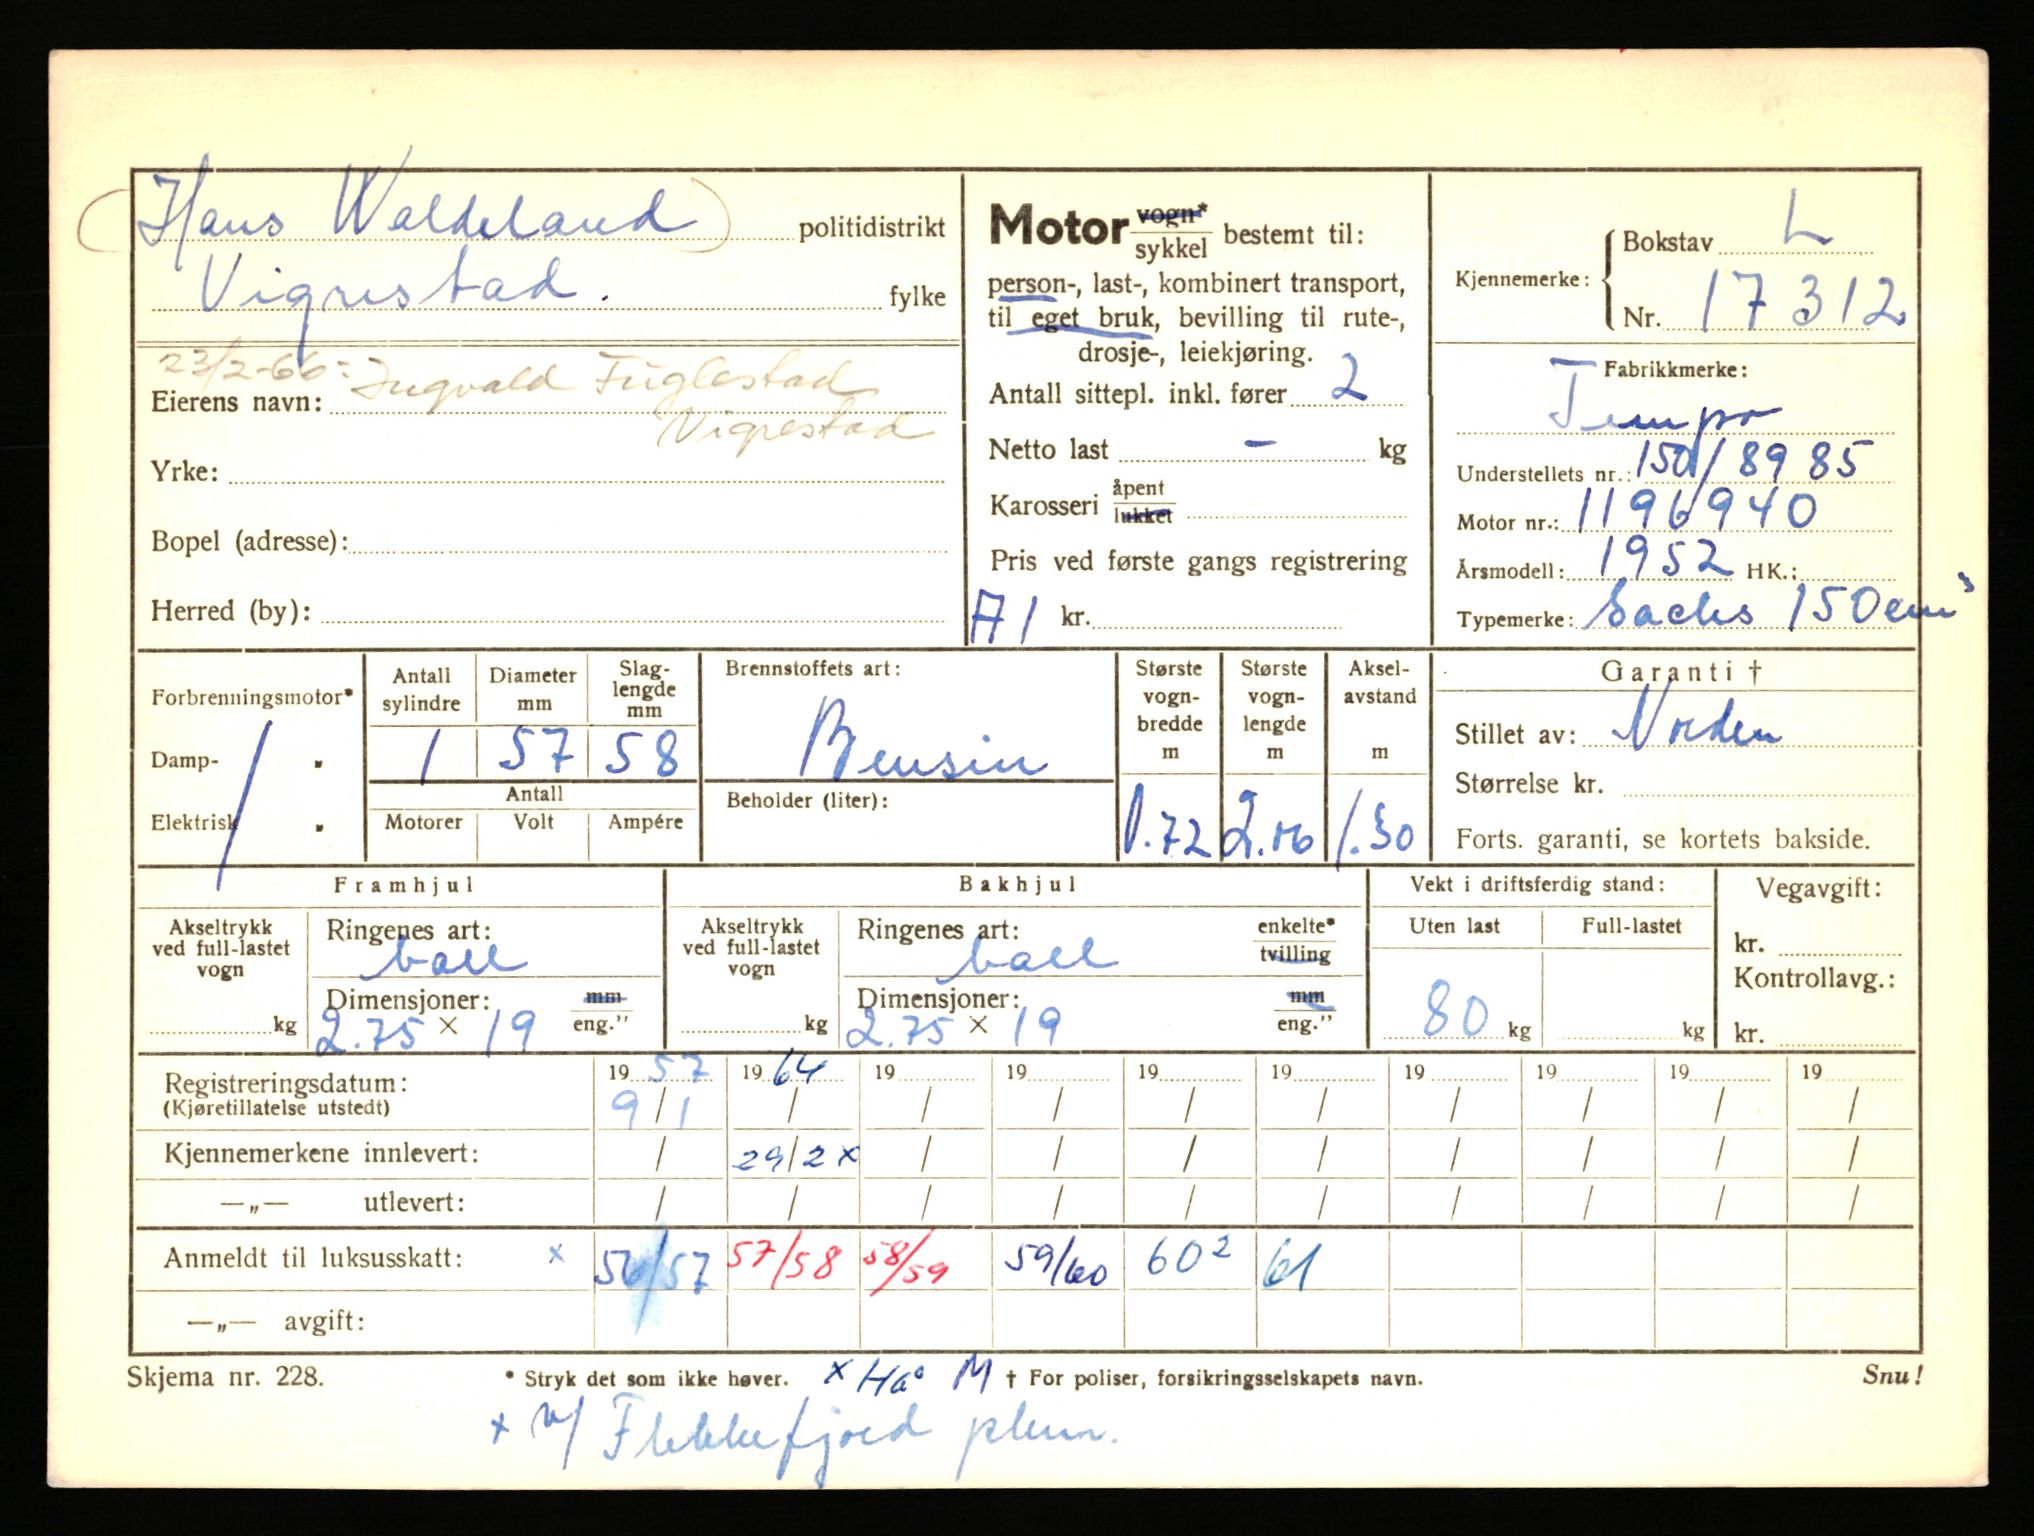 (Hans Waldeland) politidistrikt
Vigrestad. fylke
23/2-66: Ingvald Fuglestad
Eierens navn:
Vigrestad
Yrke:
Bopel (adresse):
Herred (by):
Motor vogn* / sykkel bestemt til:
person-, last-, kombinert transport,
til eget bruk, bevilling til rute-,
drosje-, leiekjøring.
Antall sittepl. inkl. fører 2
Netto last - kg
Karosseri åpent / lukket
Pris ved første gangs registrering
A1 kr.
Kjennemerke: Bokstav L
Nr. 17312
Fabrikkmerke:
Tempo
Understellets nr.: 150/8985
Motor nr.: 1196940
Årsmodell: 1952 HK.:
Typemerke: Sachs 150cm³
Forbrenningsmotor*
Damp- "
Elektrisk "
Antall sylindre 1
Diameter mm 57
Slag-lengde mm 58
Antall
Motorer Volt Ampére
Brennstoffets art:
Bensin
Beholder (liter):
Største vogn-bredde m 0.72
Største vogn-lengde m
Aksel-avstand m 1.30
Garanti †
Stillet av: Norden
Størrelse kr.
Forts. garanti, se kortets bakside.
Framhjul
Akseltrykk ved full-lastet vogn kg
Ringenes art:
ball
Dimensjoner: mm / eng."
2.75 × 19
Bakhjul
Akseltrykk ved full-lastet vogn kg
Ringenes art: enkelte* / tvilling
ball
Dimensjoner: mm / eng."
2.75 × 19
Vekt i driftsferdig stand:
Uten last Full-lastet
80 kg kg
Vegavgift:
kr.
Kontrollavg.:
kr.
Registreringsdatum: 1957 1964 19 19 19 19 19 19 19 19
(Kjøretillatelse utstedt) 9/1 / / / / / / / / /
Kjennemerkene innlevert: / 29/2 x / / / / / / / /
—„— utlevert: / / / / / / / / / /
Anmeldt til luksusskatt: x 56/57 57/58 58/59 59/60 60² 61
—„— avgift:
Skjema nr. 228. * Stryk det som ikke høver. x M † For poliser, forsikringsselskapets navn. Snu!
x Flekkefjord